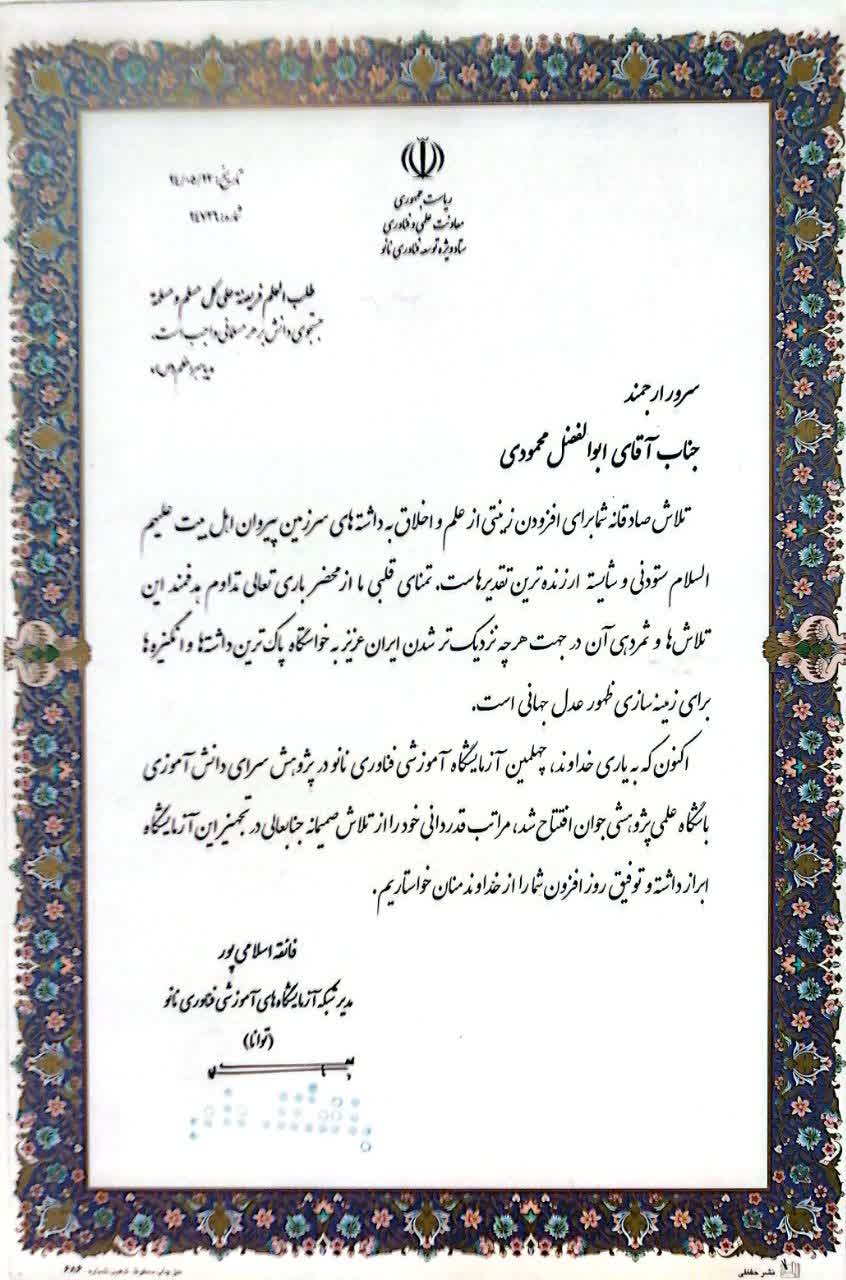 ریاست جمهوری
معاونت علمی و فناوری
ستاد ویژه توسعه فناوری نانو
تاریخ:
شماره:
طلب العلم فریضة علی کل مسلم و مسلمة
جستجوی دانش بر هر مسلمانی واجب است.
سرور ارجمند
جناب آقای ابوالفضل محمودی
تلاش صادقانه شما برای افزودن زینتی از علم و اخلاق به داشته های سرزمین پیروان اهل بیت علیهم
السلام ستودنی و شایسته ارزنده ترین تقدیرهاست. تمنای قلبی ما از محضر باری تعالی تداوم هدفمند این
تلاش‌ها و ثمردهی آن در جهت هرچه نزدیک تر شدن ایران عزیز به خواستگاه پاک ترین داشته ها و انگیزه ها
برای زمینه سازی ظهور عدل جهانی است.
اکنون که به یاری خداوند، چهلمین آزمایشگاه آموزشی فناوری نانو در پژوهش سرای دانش آموزی
باشگاه علمی پژوهشی جوان افتتاح شد، مراتب قدردانی خود را از تلاش صمیمانه جنابعالی در تجهیز این آزمایشگاه
ابراز داشته و توفیق روز افزون شما را از خداوند منان خواستاریم.
فائقه اسلامی پور
مدیر شبکه آزمایشگاه های آموزشی فناوری نانو
(توانا)
نشر حفظی
۶۸۶